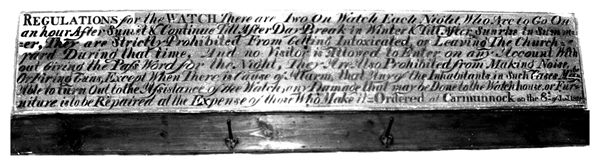 REGULATIONS for the WATCH There are Two On Watch Each Night, Who Are to Go On
an hour After Sunset & Continue Till After Day Break in Winter & Till After Sunrise in Summ-
er, They are Strictly Prohibited From Getting Intoxicated, or Leaving The Church-
yard During that Time, And no Visitor is Allowed to Enter on any Account With
out Giving the Pass Word for the Night, They Are Also Prohibited from Making Noise,
Or Firing Guns, Except When There is Cause of Alarm, That Any of the Inhabitants in Such Cases, May
able to turn Out to the Assistance of the Watch, any Damage that may be Done to the Watch house, or Fur-
niture is to be Repaired at the Expense of those Who Make it = Ordered at Carmunnock on the 8th